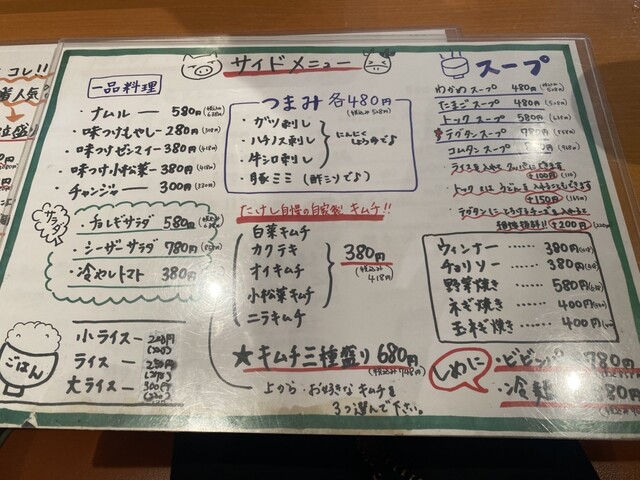 コレ!!
サイドメニュー
一品料理
・ナムル― 580円(税込み638円)
・味つけもやし―280円(308円)
・味つけゼンマイ―380円(418円)
・味つけ小松菜―380円(418円)
・チャンジャ― 300円(330円)
サラダ
・チョレギサラダ 580円
・シーザーサラダ 780円
・冷やしトマト 380円
ごはん
小ライス―200円(220)
ライス―250円
大ライス―300円
つまみ 各480円
(税込み528円)
・ガツ刺し
・ハチノス刺し
・牛シロ刺し
にんにくしょう油で♪
・豚ミミ(酢ミソで♪)
たけし自慢の自家製キムチ!!
白菜キムチ
カクテキ
オイキムチ
小松菜キムチ
ニラキムチ
380円
(税込み418円)
★キムチ三種盛り 680円
(税込み748円)
上から・お好きなキムチを
3つ選んで下さい。
スープ
わかめスープ 480円(税込み528円)
たまごスープ 480円(528円)
トックスープ 580円
ユッケジャンスープ 780円
コムタンスープ
ライスを入れてクッパにできます
+100円(110)
・トックまたはうどんを入れることもできます
+150円(165)
+200円
ウィンナー ― 380円
チョリソー ― 380円
野菜焼き ― 580円
ネギ焼き ― 400円
玉ネギ焼き ― 400円
しめに
・ビビンバ 780円
・冷麺